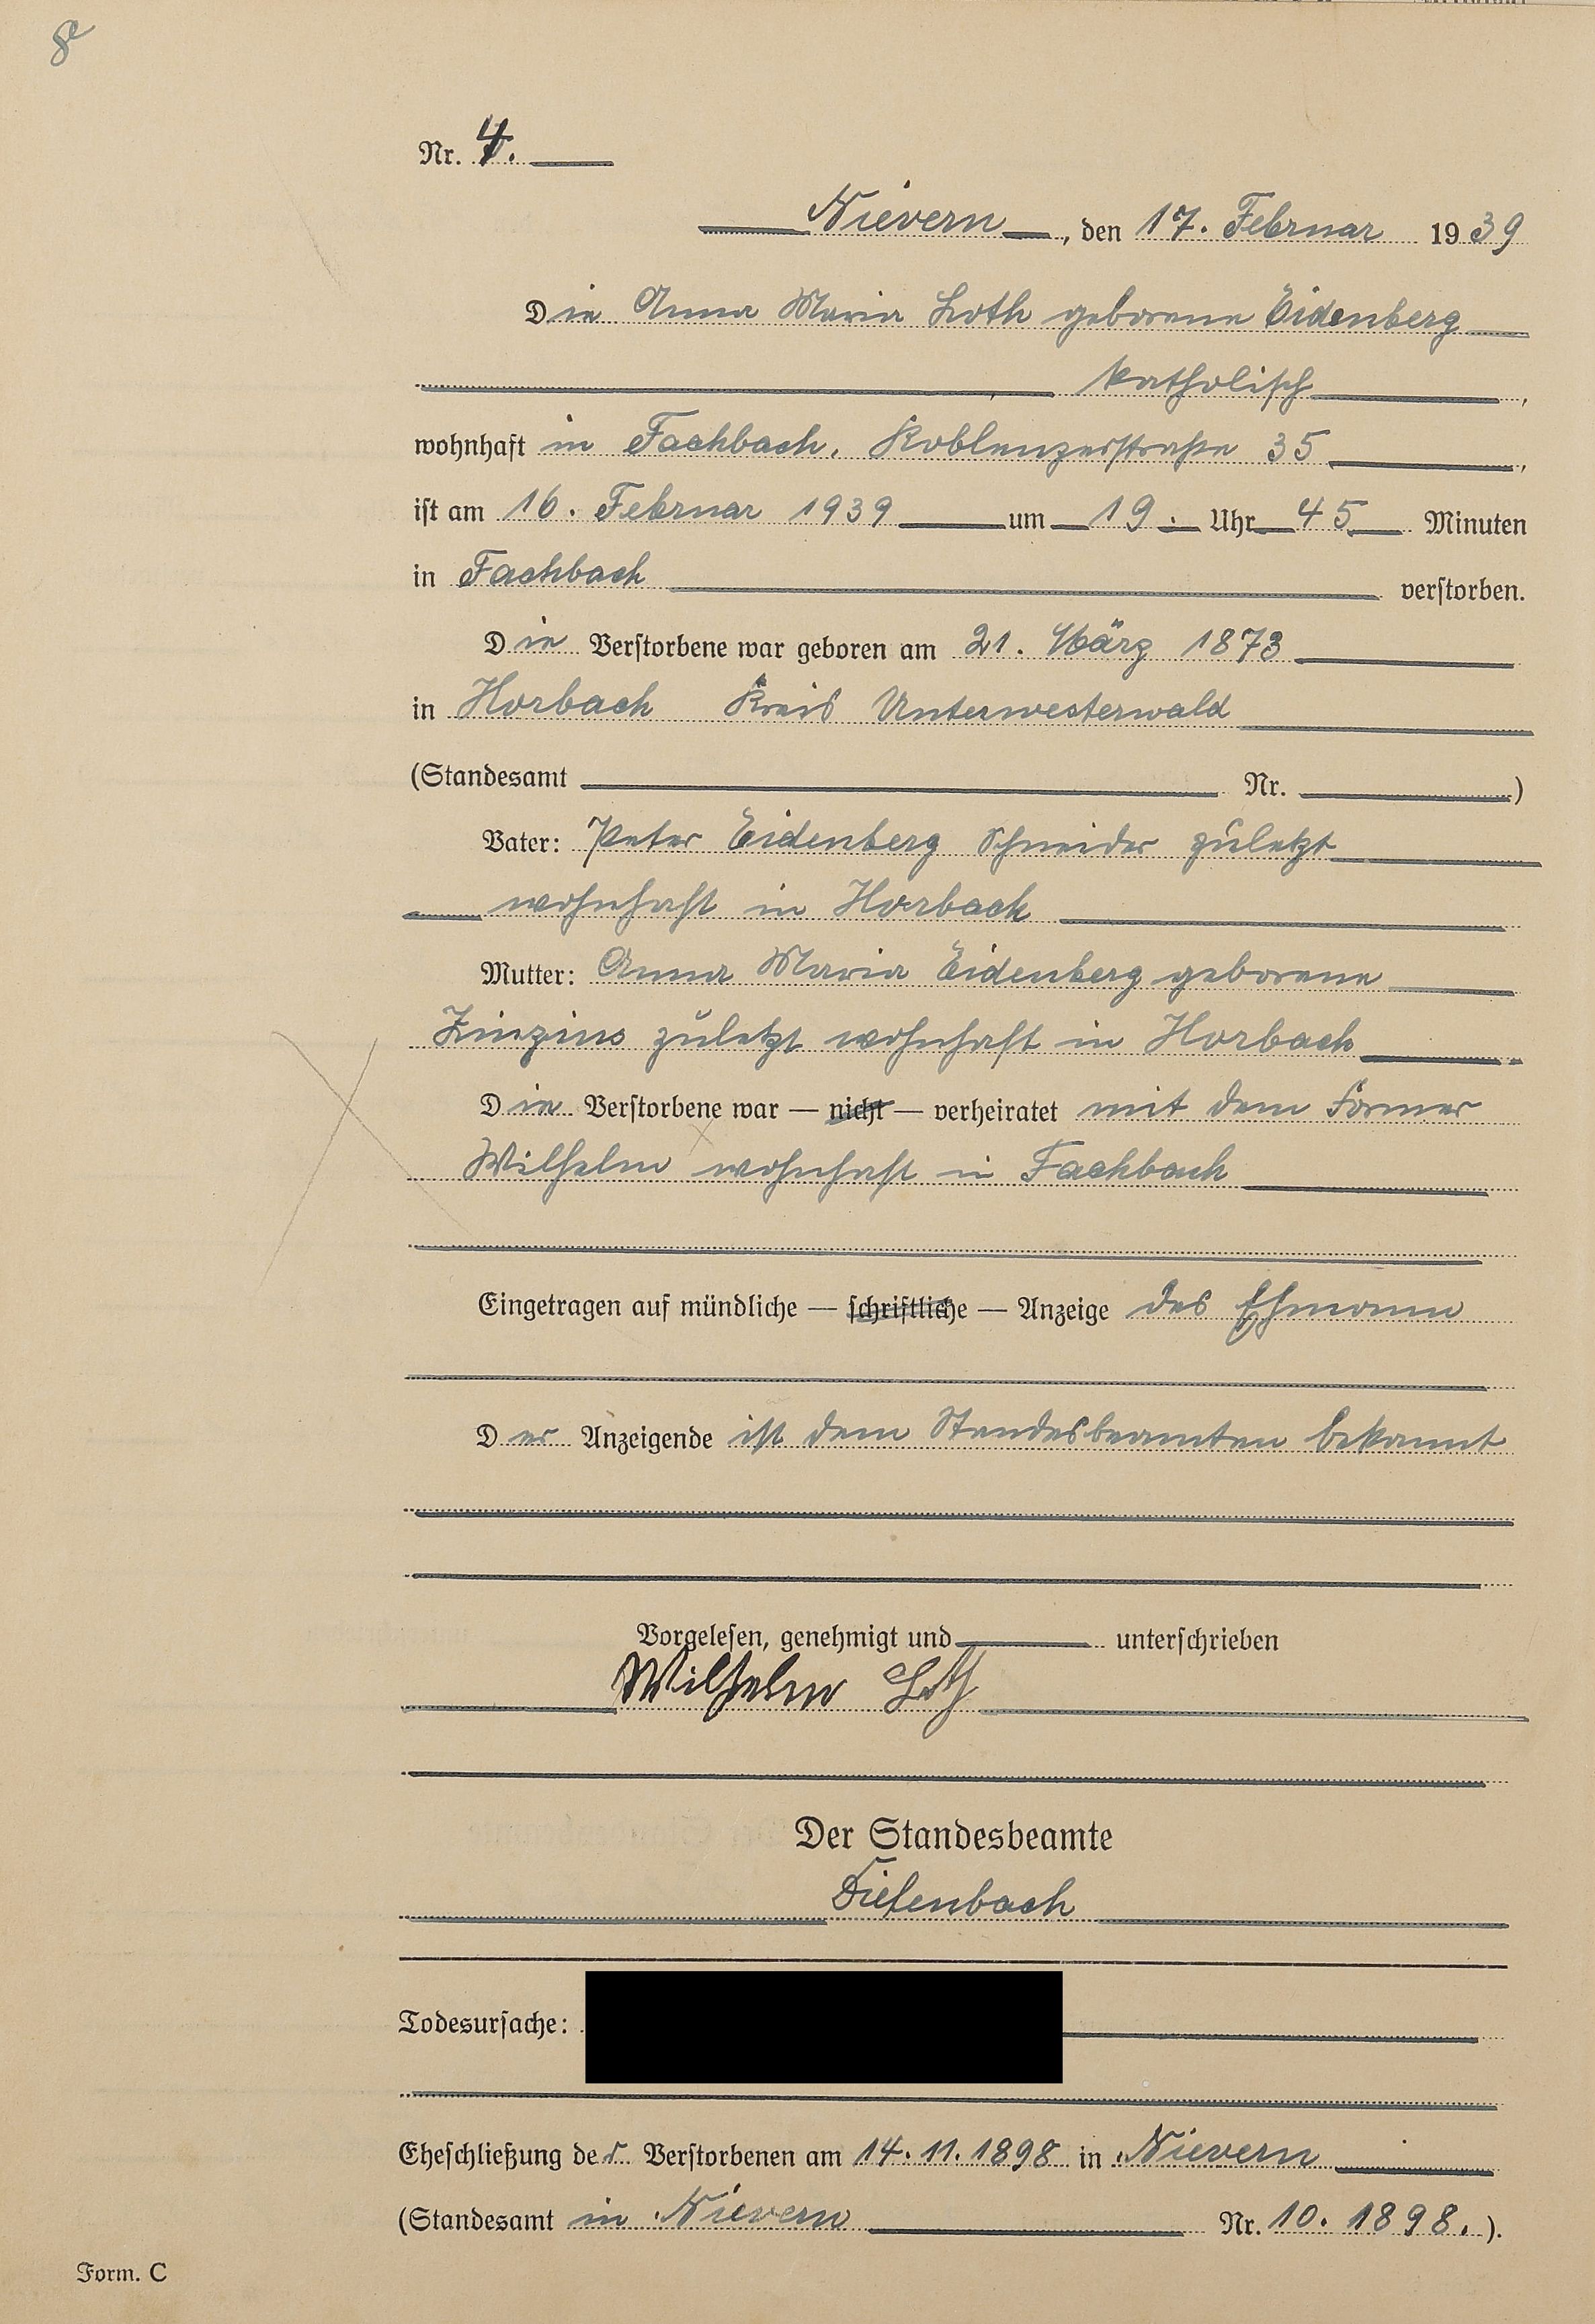 8
Nr. 4.
Nievern, den 17. Februar 1939
Die Anna Maria Loth geborene Eidenberg
katholisch,
wohnhaft in Fachbach, Koblenzerstraße 35,
ist am 16. Februar 1939 um 19. Uhr 45 Minuten
in Fachbach verstorben.
Die Verstorbene war geboren am 21. März 1873
in Horbach Kreis Unterwesterwald
(Standesamt Nr. )
Vater: Peter Eidenberg Schneider zuletzt
wohnhaft in Horbach
Mutter: Anna Maria Eidenberg geborene
zuletzt wohnhaft in Horbach
Die Verstorbene war — nicht — verheiratet mit dem Former
Wilhelm wohnhaft in Fachbach
Eingetragen auf mündliche — schriftliche — Anzeige des Ehmann
Der Anzeigende ist dem Standesbeamten bekannt
Vorgelesen, genehmigt und unterschrieben
Wilhelm Loth
Der Standesbeamte
Diefenbach
Todesursache:
Eheschließung der Verstorbenen am 14.11.1898 in Nievern
(Standesamt in Nievern Nr. 10. 1898.).
Form. C